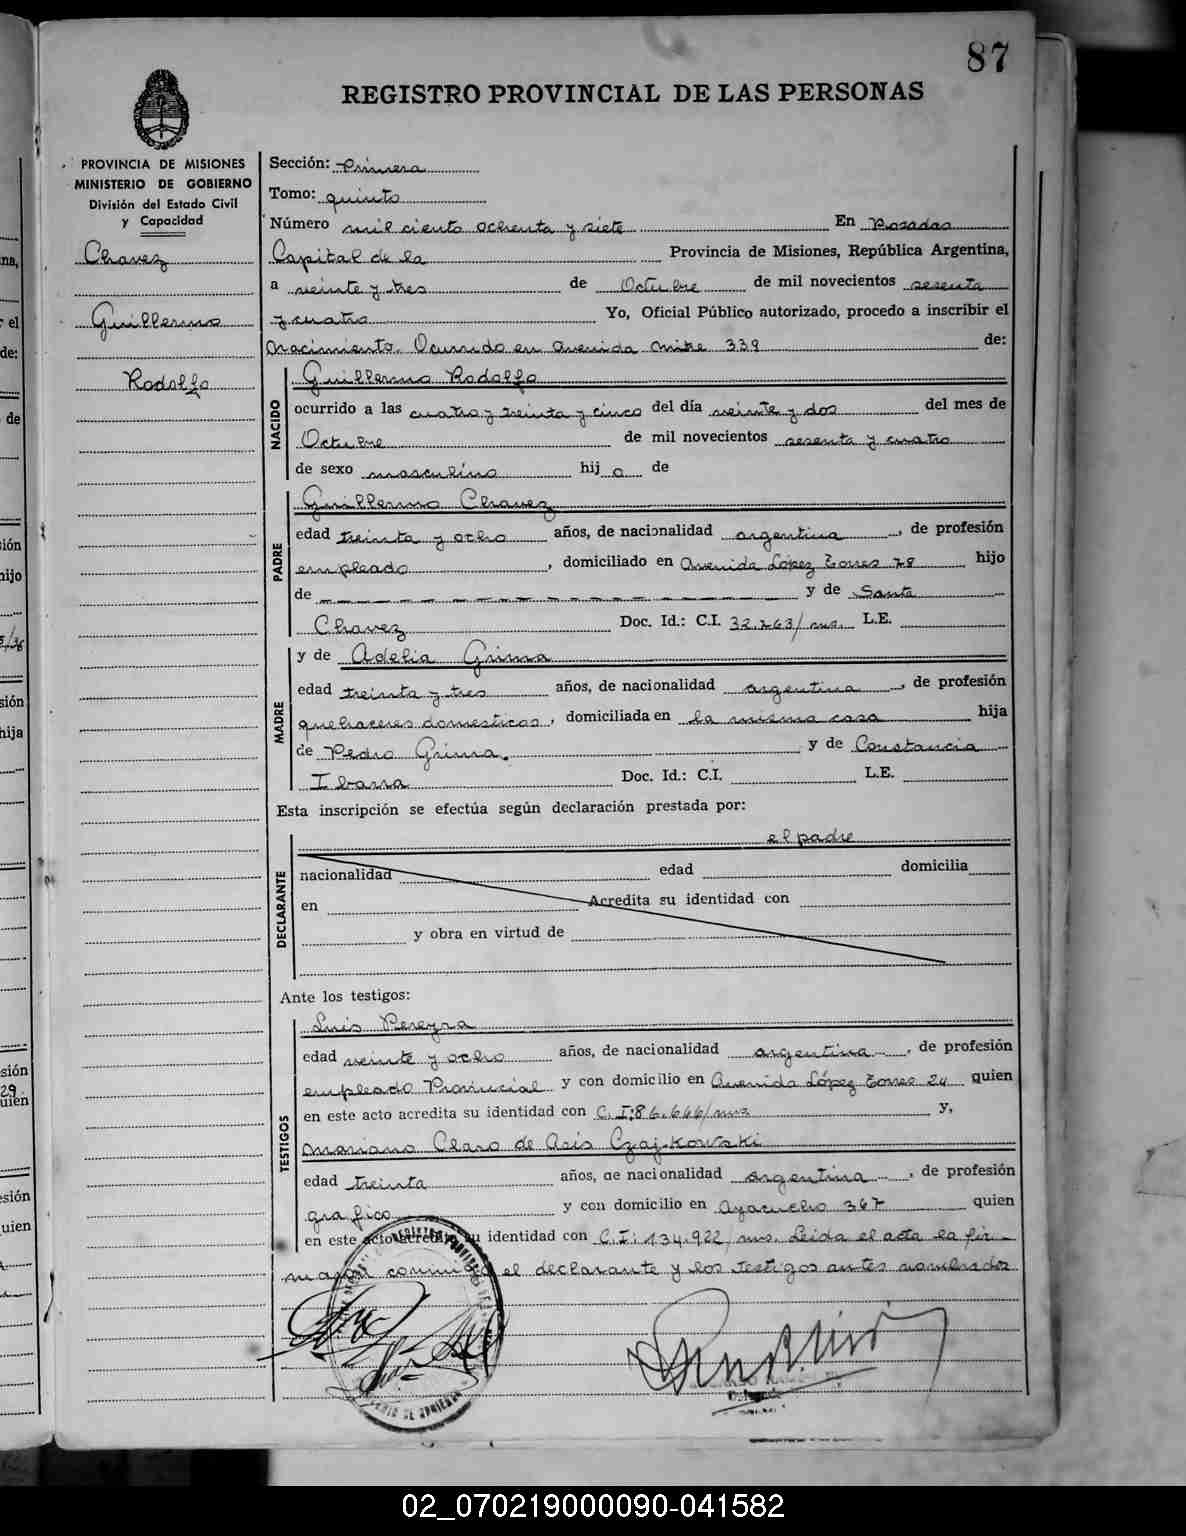 87
REGISTRO PROVINCIAL DE LAS PERSONAS
PROVINCIA DE MISIONES
MINISTERIO DE GOBIERNO
División del Estado Civil
y Capacidad
Chavez
Guillermo
Rodolfo
Sección: Primera
Tomo: quinto
Número mil ciento ochenta y siete En Posadas
Capital de la Provincia de Misiones, República Argentina,
a veinte y tres de Octubre de mil novecientos sesenta
y cuatro Yo, Oficial Público autorizado, procedo a inscribir el
Nacimiento. Ocurrido en Avenida Mitre 339 de:
NACIDO
Guillermo Rodolfo
ocurrido a las cuatro y treinta y cinco del día veinte y dos del mes de
Octubre de mil novecientos sesenta y cuatro
de sexo masculino hijo de
PADRE
Guillermo Chavez
edad treinta y ocho años, de nacionalidad argentina, de profesión
empleado, domiciliado en Avenida López Torres 78 hijo
de — — — — — — — — y de Santa
Chavez Doc. Id.: C.I. 32.263/ms. L.E.
MADRE
y de Adelia Grima
edad treinta y tres años, de nacionalidad argentina, de profesión
quehaceres domesticos, domiciliada en la misma casa hija
de Pedro Grima. y de Constancia
Ibarra Doc. Id.: C.I. L.E.
Esta inscripción se efectúa según declaración prestada por:
DECLARANTE
el padre
nacionalidad edad domicilia
en Acredita su identidad con
y obra en virtud de
Ante los testigos:
TESTIGOS
Luis Pereyra
edad veinte y ocho años, de nacionalidad argentina, de profesión
empleado Provincial y con domicilio en Avenida López Torres 24 quien
en este acto acredita su identidad con C.I: 86.666/ms y,
Mariano Claro de Asis Czajkowski
edad treinta años, de nacionalidad argentina, de profesión
grafico y con domicilio en Ayacucho 367 quien
en este acto acredita su identidad con C.I: 134.922/ms. Leida el acta la fir-
man conmigo el declarante y los testigos antes nombrados
02_070219000090-041582